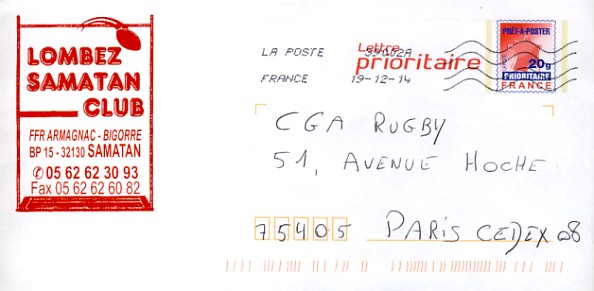 LOMBEZ
SAMATAN
CLUB
FFR ARMAGNAC - BIGORRE
BP 15 - 32130 SAMATAN
✆ 05 62 62 30 93
Fax 05 62 62 60 82
LA POSTE 39002A
FRANCE 19-12-14
Lettre
prioritaire
PRÊT-À-POSTER
20g
PRIORITAIRE
FRANCE
CGA RUGBY
51, AVENUE HOCHE
75405 PARIS CEDEX 08